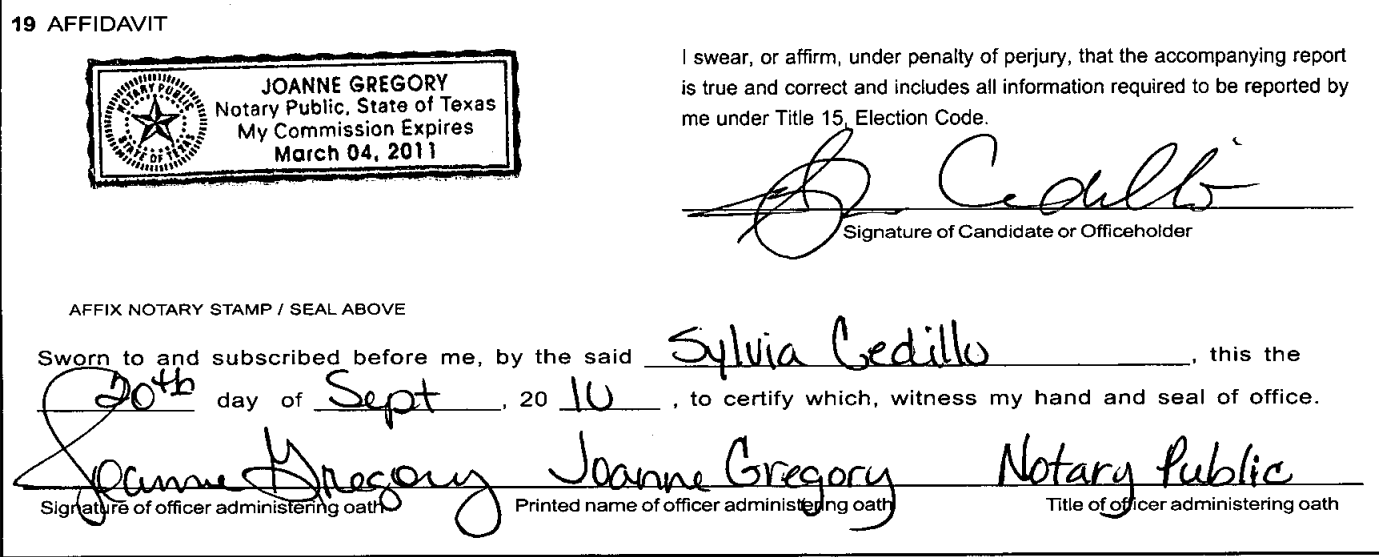 19 AFFIDAVIT
JOANNE GREGORY
Notary Public, State of Texas
My Commission Expires
March 04, 2011
NOTARY PUBLIC
STATE OF TEXAS
I swear, or affirm, under penalty of perjury, that the accompanying report
is true and correct and includes all information required to be reported by
me under Title 15, Election Code.
Cedillo
Signature of Candidate or Officeholder
AFFIX NOTARY STAMP / SEAL ABOVE
Sworn to and subscribed before me, by the said Sylvia Cedillo, this the
20th day of Sept, 20 10, to certify which, witness my hand and seal of office.
Joanne Gregory Joanne Gregory Notary Public
Signature of officer administering oath Printed name of officer administering oath Title of officer administering oath